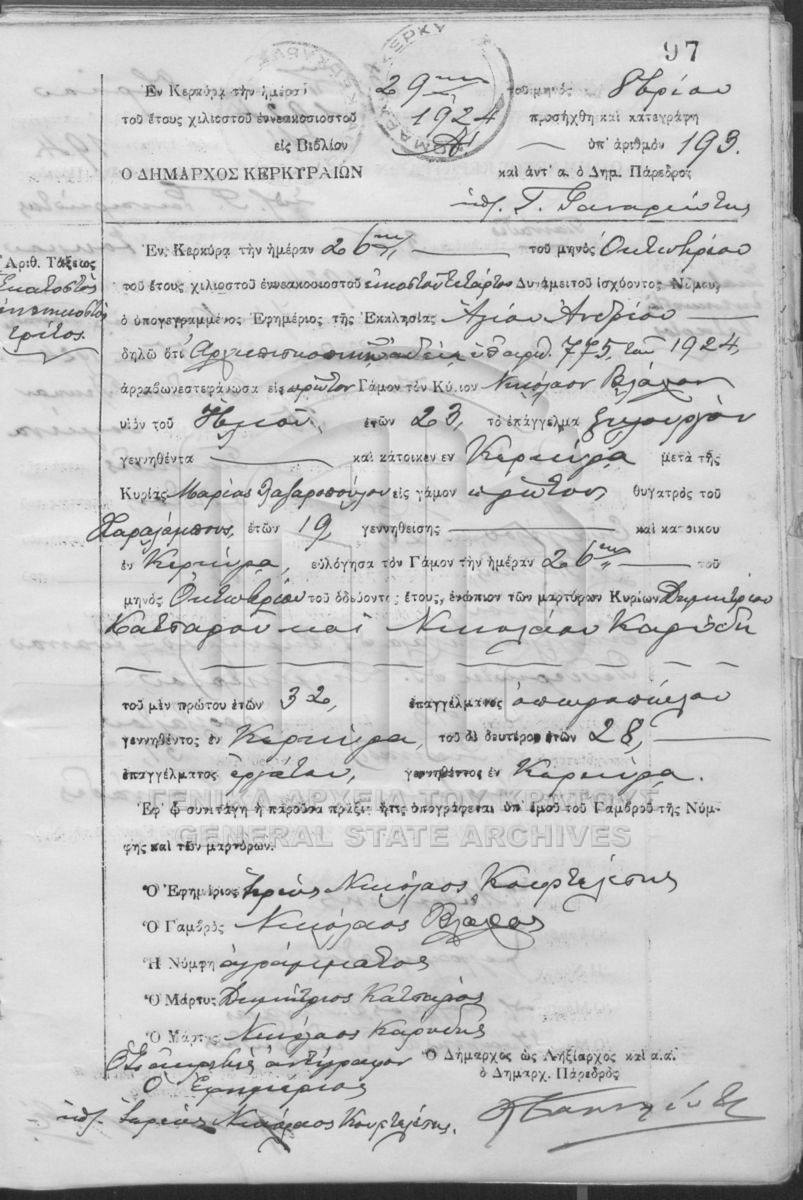 97
Ἐν Κερκύρᾳ τὴν ἡμέραν 29ην τοῦ μηνὸς 8βρίου
τοῦ ἔτους χιλιοστοῦ ἐννεακοσιοστοῦ 1924 προσήχθη καὶ κατεγράφη
εἰς Βιβλίον Α' ὑπ' ἀριθμὸν 193.
Ο ΔΗΜΑΡΧΟΣ ΚΕΡΚΥΡΑΙΩΝ καὶ ἀντ' α. ὁ Δημ. Πάρεδρος
Γ.
Ἀριθ. Τάξεως
Ἑκατοστὸς
ἐνενηκοστὸς
τρίτος.
Ἐν Κερκύρᾳ τὴν ἡμέραν 26ην τοῦ μηνὸς Ὀκτωβρίου
τοῦ ἔτους χιλιοστοῦ ἐννεακοσιοστοῦ εἰκοστοῦ τετάρτου Δυνάμει τοῦ ἰσχύοντος Νόμου,
ὁ ὑπογεγραμμένος Ἐφημέριος τῆς Ἐκκλησίας Ἁγίου Ἀνδρέου
δηλῶ ὅτι Ἀρχιεπισκοπικῇ ἀδείᾳ ὑπ' ἀριθ. 775, τοῦ 1924,
ἀρραβωνεστεφάνωσα εἰς πρῶτον Γάμον τὸν Κύριον Νικόλαον Βλάχον
υἱὸν τοῦ Ἠλιοῦ, ἐτῶν 23, τὸ ἐπάγγελμα ξυλουργὸν
γεννηθέντα καὶ κάτοικον ἐν Κερκύρᾳ μετὰ τῆς
Κυρίας Μαρίας Λαζαροπούλου εἰς γάμον πρῶτον, θυγατρὸς τοῦ
Χαραλάμπους, ἐτῶν 19, γεννηθείσης καὶ κατοίκου
ἐν Κερκύρᾳ, εὐλόγησα τὸν Γάμον τὴν ἡμέραν 26ην τοῦ
μηνὸς Ὀκτωβρίου τοῦ ὁδεύοντος ἔτους, ἐνώπιον τῶν μαρτύρων Κυρίων Δημητρίου
Κατσαροῦ καὶ Νικολάου Καρύδη
τοῦ μὲν πρώτου ἐτῶν 32, ἐπαγγέλματος ὀπωροπώλου
γεννηθέντος ἐν Κερκύρᾳ, τοῦ δὲ δευτέρου ἐτῶν 28,
ἐπαγγέλματος ἐργάτου, γεννηθέντος ἐν Κερκύρᾳ.
Ἐφ' ᾧ συνετάγη ἡ παροῦσα πρᾶξις ἥτις ὑπογράφεται ὑπ' ἐμοῦ τοῦ Γαμβροῦ τῆς Νύμ-
φης καὶ τῶν μαρτύρων.
ΓΕΝΙΚΑ ΑΡΧΕΙΑ ΤΟΥ ΚΡΑΤΟΥΣ
GENERAL STATE ARCHIVES
Ὁ Ἐφημέριος Ἱερεὺς Νικόλαος Κουρτελέσης
Ὁ Γαμβρὸς Νικόλαος Βλάχος
Ἡ Νύμφη ἀγράμματος
Ὁ Μάρτυς Δημήτριος Κατσαρὸς
Ὁ Μάρτυς Νικόλαος Καρύδης
Ὅτι ἀκριβὲς ἀντίγραφον
Ὁ Ἐφημέριος
ὑπ. Ἱερεὺς Νικόλαος Κουρτελέσης.
Ὁ Δήμαρχος ὡς Ληξίαρχος καὶ α.α.
ὁ Δημαρχ. Πάρεδρος